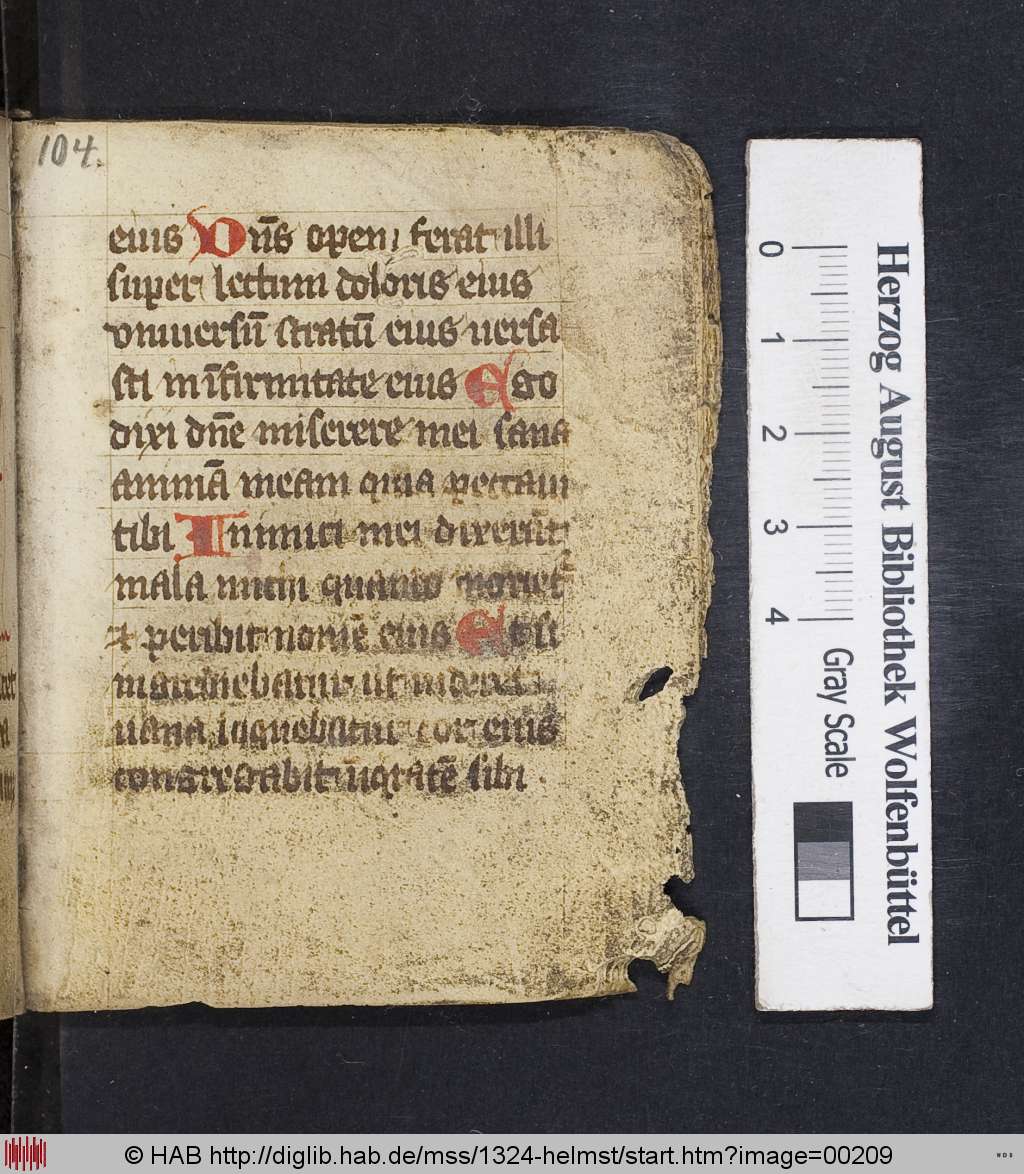 104.
eius Dn̄s opem ferat illi
super lectum doloris eius
vniuersū stratū eius uersa
sti in īfirmitate eius Ego
dixi dn̄e miserere mei sana
animā meam quia peccaui
tibi Inimici mei dixerūt
mala michi quando
⁊ peribit nomē eius Et si
ingrediebatur ut uideret
uana loquebatur cor eius
congregabit iniqitatē sibi
0 1 2 3 4
Gray Scale
Herzog August Bibliothek Wolfenbüttel
© HAB http://diglib.hab.de/mss/1324-helmst/start.htm?image=00209
WDB